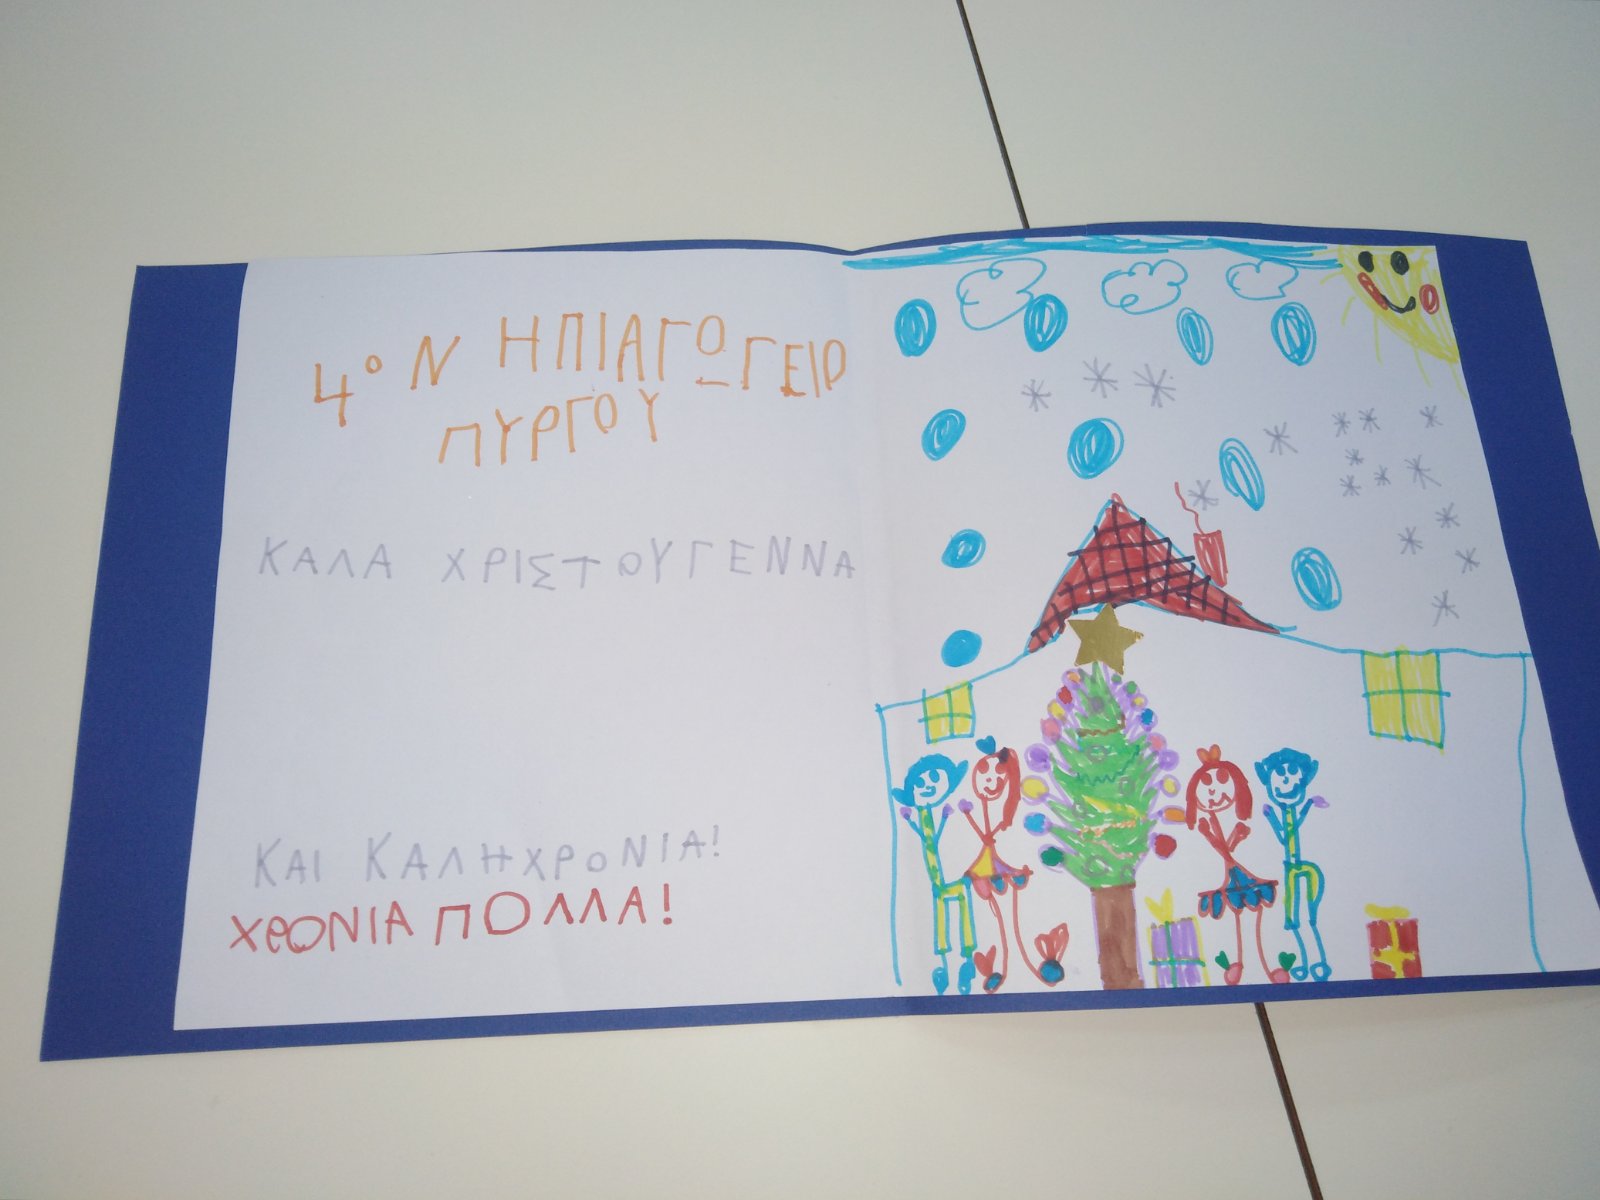 4ο Ν ΗΠΙΑΓΩΓΕΙΟ
ΠΥΡΓΟΥ
ΚΑΛΑ ΧΡΙΣΤΟΥΓΕΝΝΑ
ΚΑΙ ΚΑΛΗΧΡΟΝΙΑ!
ΧΡΟΝΙΑ ΠΟΛΛΑ!